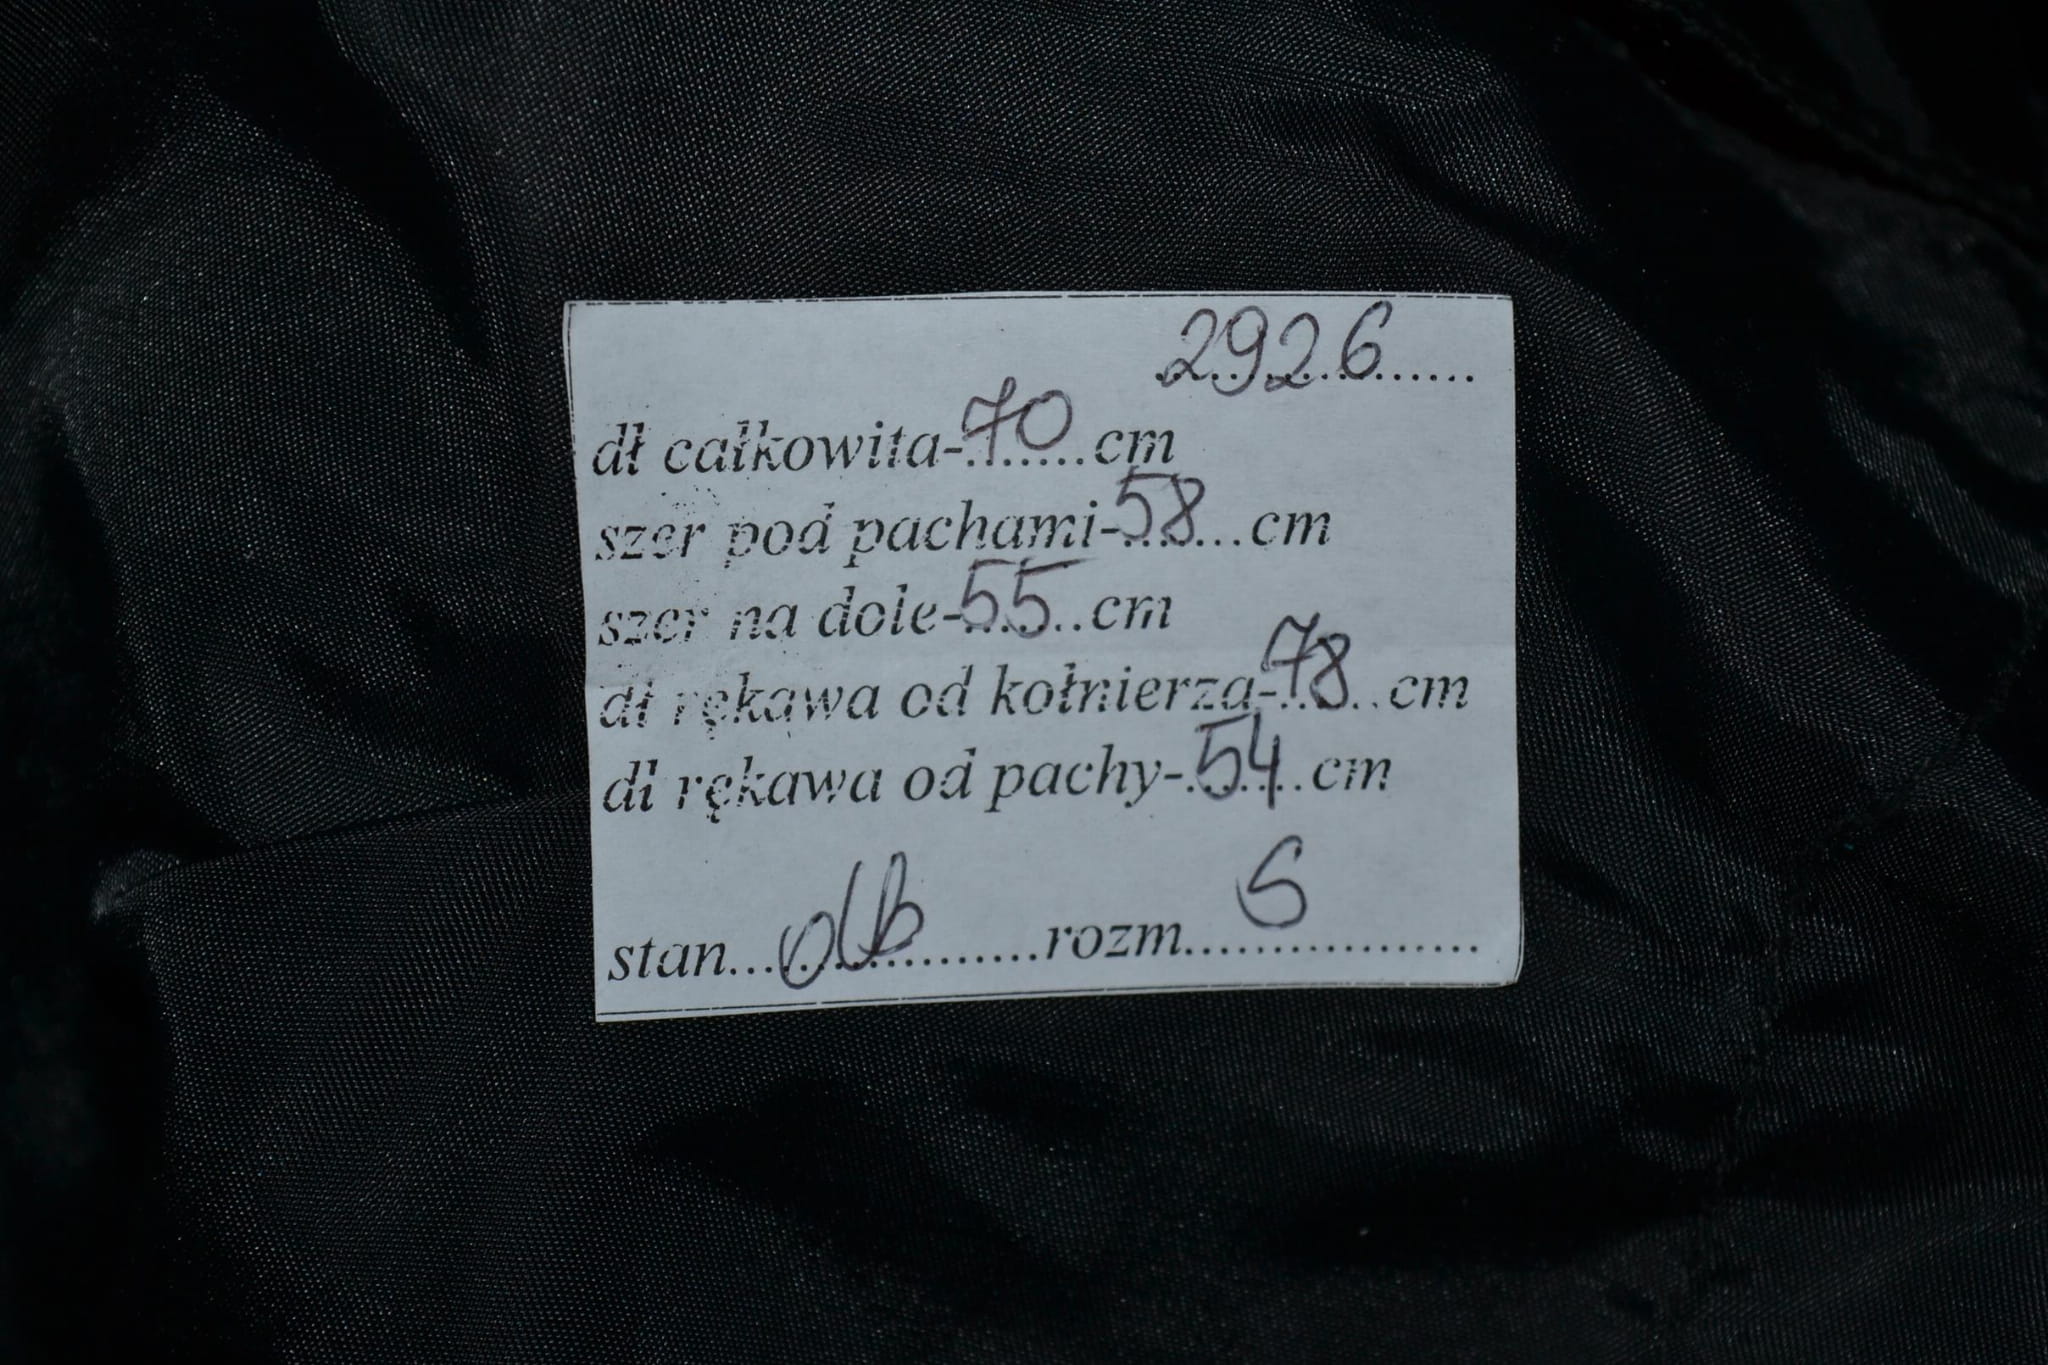 2926
dł całkowita-70 cm
szer pod pachami-58 cm
szer na dole-55 cm
dł rękawa od kołnierza-78 cm
dł rękawa od pachy-54 cm
stan... ........rozm... S